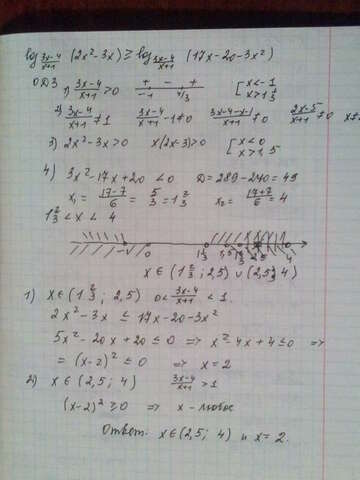 log_{\frac{3x-4}{x+1}} (2x²-3x) ≥ log_{\frac{3x-4}{x+1}} (17x-20-3x²)
ОДЗ 1) \frac{3x-4}{x+1} > 0   + - +   -1   4/3   [ x<-1   x>1⅓
2) \frac{3x-4}{x+1} ≠ 1   \frac{3x-4}{x+1} -1≠0   \frac{3x-4-x-1}{x+1} ≠0   \frac{2x-5}{x+1} ≠0
3) 2x²-3x>0   x(2x-3)>0   [ x<0   x>1,5
4) 3x²-17x+20 <0   D=289-240=49
x₁ = \frac{17-7}{6} = \frac{5}{3} = 1⅔   x₂ = \frac{17+7}{6} = 4
1⅔ < x < 4
-1   0   1⅓   1,5   1⅔   2,5   4
x ∈ (1⅔ ; 2,5) ∪ (2,5; 4)
1) x ∈ (1⅔ ; 2,5)   0< \frac{3x-4}{x+1} < 1.
2x²-3x ≤ 17x-20-3x²
5x²-20x+20 ≤ 0 ⇒ x²-4x+4≤0 ⇒
= (x-2)² ≤ 0   ⇒ x=2
2) x ∈ (2,5; 4)   \frac{3x-4}{x+1} >1
(x-2)² ≥0 ⇒ x-любое
Ответ: x∈(2,5; 4) и x=2.